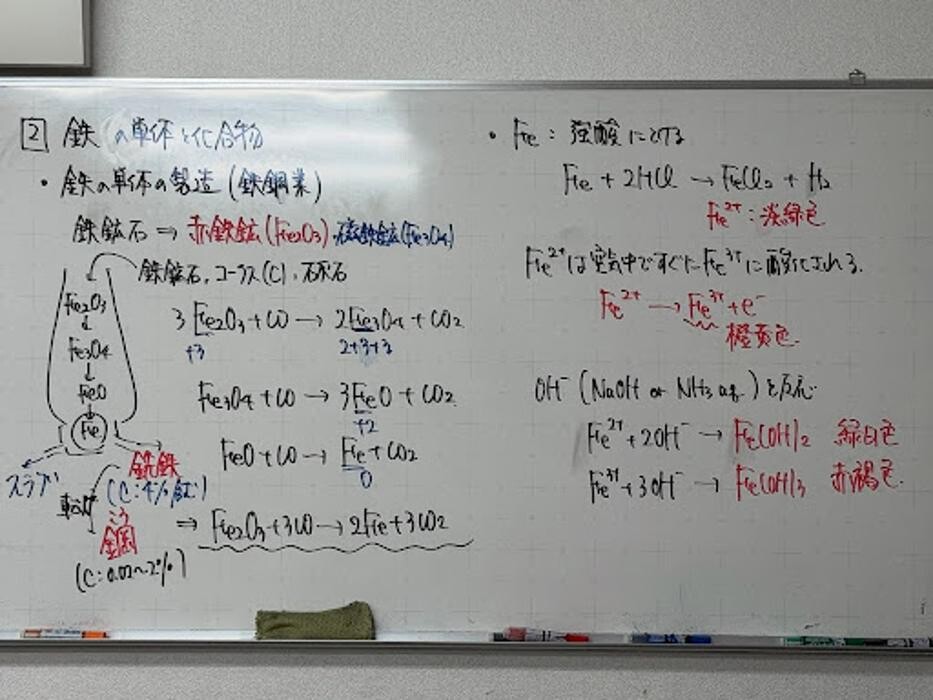 2 鉄の単体と化合物
・鉄の単体の製造(鉄鋼業)
鉄鉱石 ⇒ 赤鉄鉱(Fe2O3)・磁鉄鉱(Fe3O4)
鉄鉱石, コークス(C), 石灰石
Fe2O3
↓
Fe3O4
↓
FeO
↓
Fe
スラグ
銑鉄
(C:4%含む)
転炉
鋼
(C:0.02~2%)
3Fe2O3 + CO → 2Fe3O4 + CO2
+3
2+3+3
Fe3O4 + CO → 3FeO + CO2
+2
FeO + CO → Fe + CO2
0
⇒ Fe2O3 + 3CO → 2Fe + 3CO2
・Fe: 強酸にとける
Fe + 2HCl → FeCl2 + H2
Fe2+:淡緑色
Fe2+は空気中ですぐにFe3+に酸化される.
Fe2+ → Fe3+ + e-
橙黄色.
OH- (NaOH or NH3 aq.) と反応
Fe2+ + 2OH- → Fe(OH)2 緑白色
Fe3+ + 3OH- → Fe(OH)3 赤褐色.